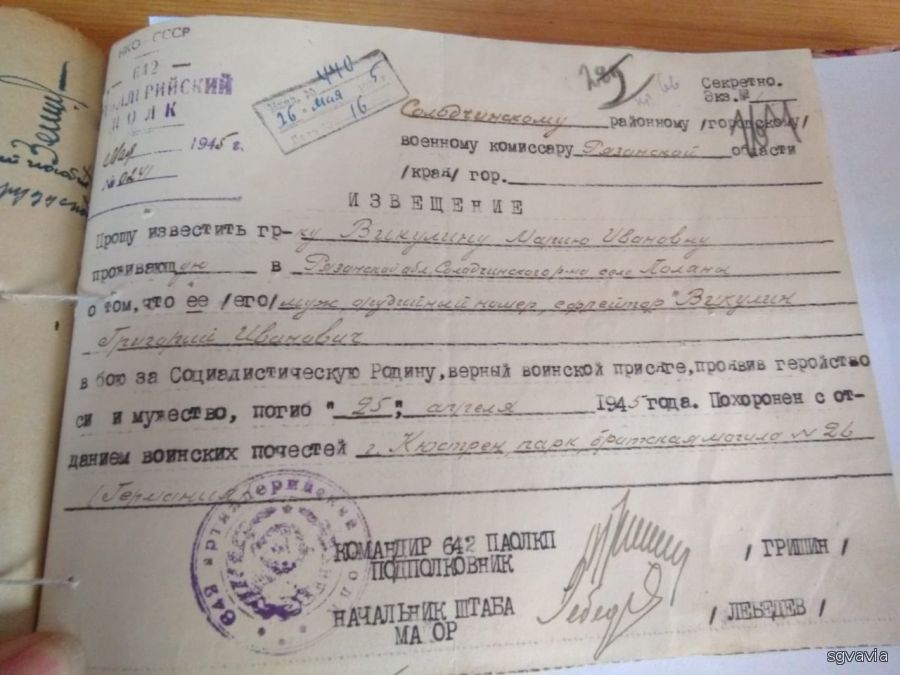 НКО-СССР
- 642 -
АРТИЛЛЕРИЙСКИЙ
ПОЛК
Мая 1945 г.
№ 0241
440
26 мая 5
16
285
66
Секретно.
Экз.№
Солодчинскому районному /городскому/
военному комиссару Рязанской области
/края/ гор.
ИЗВЕЩЕНИЕ
Прошу известить гр-ку Викулину Марию Ивановну
проживающую в Рязанской обл. Солодчинского р-на село Поляны
о том, что ее /его/ муж, орудийный номер, ефрейтор Викулин
Григорий Иванович
в бою за Социалистическую Родину, верный воинской присяге, проявив геройство
си и мужество, погиб "25" апреля 1945 года. Похоронен с от-
данием воинских почестей г. Кюстрен, парк, братская могила № 26
(Германия)
642 артиллерийский полк
КОМАНДИР 642 ПАОЛКП
ПОДПОЛКОВНИК
Гришин
/ ГРИШИН /
НАЧАЛЬНИК ШТАБА
МА ОР
Лебедев
/ ЛЕБЕДЕВ /
sgvavia